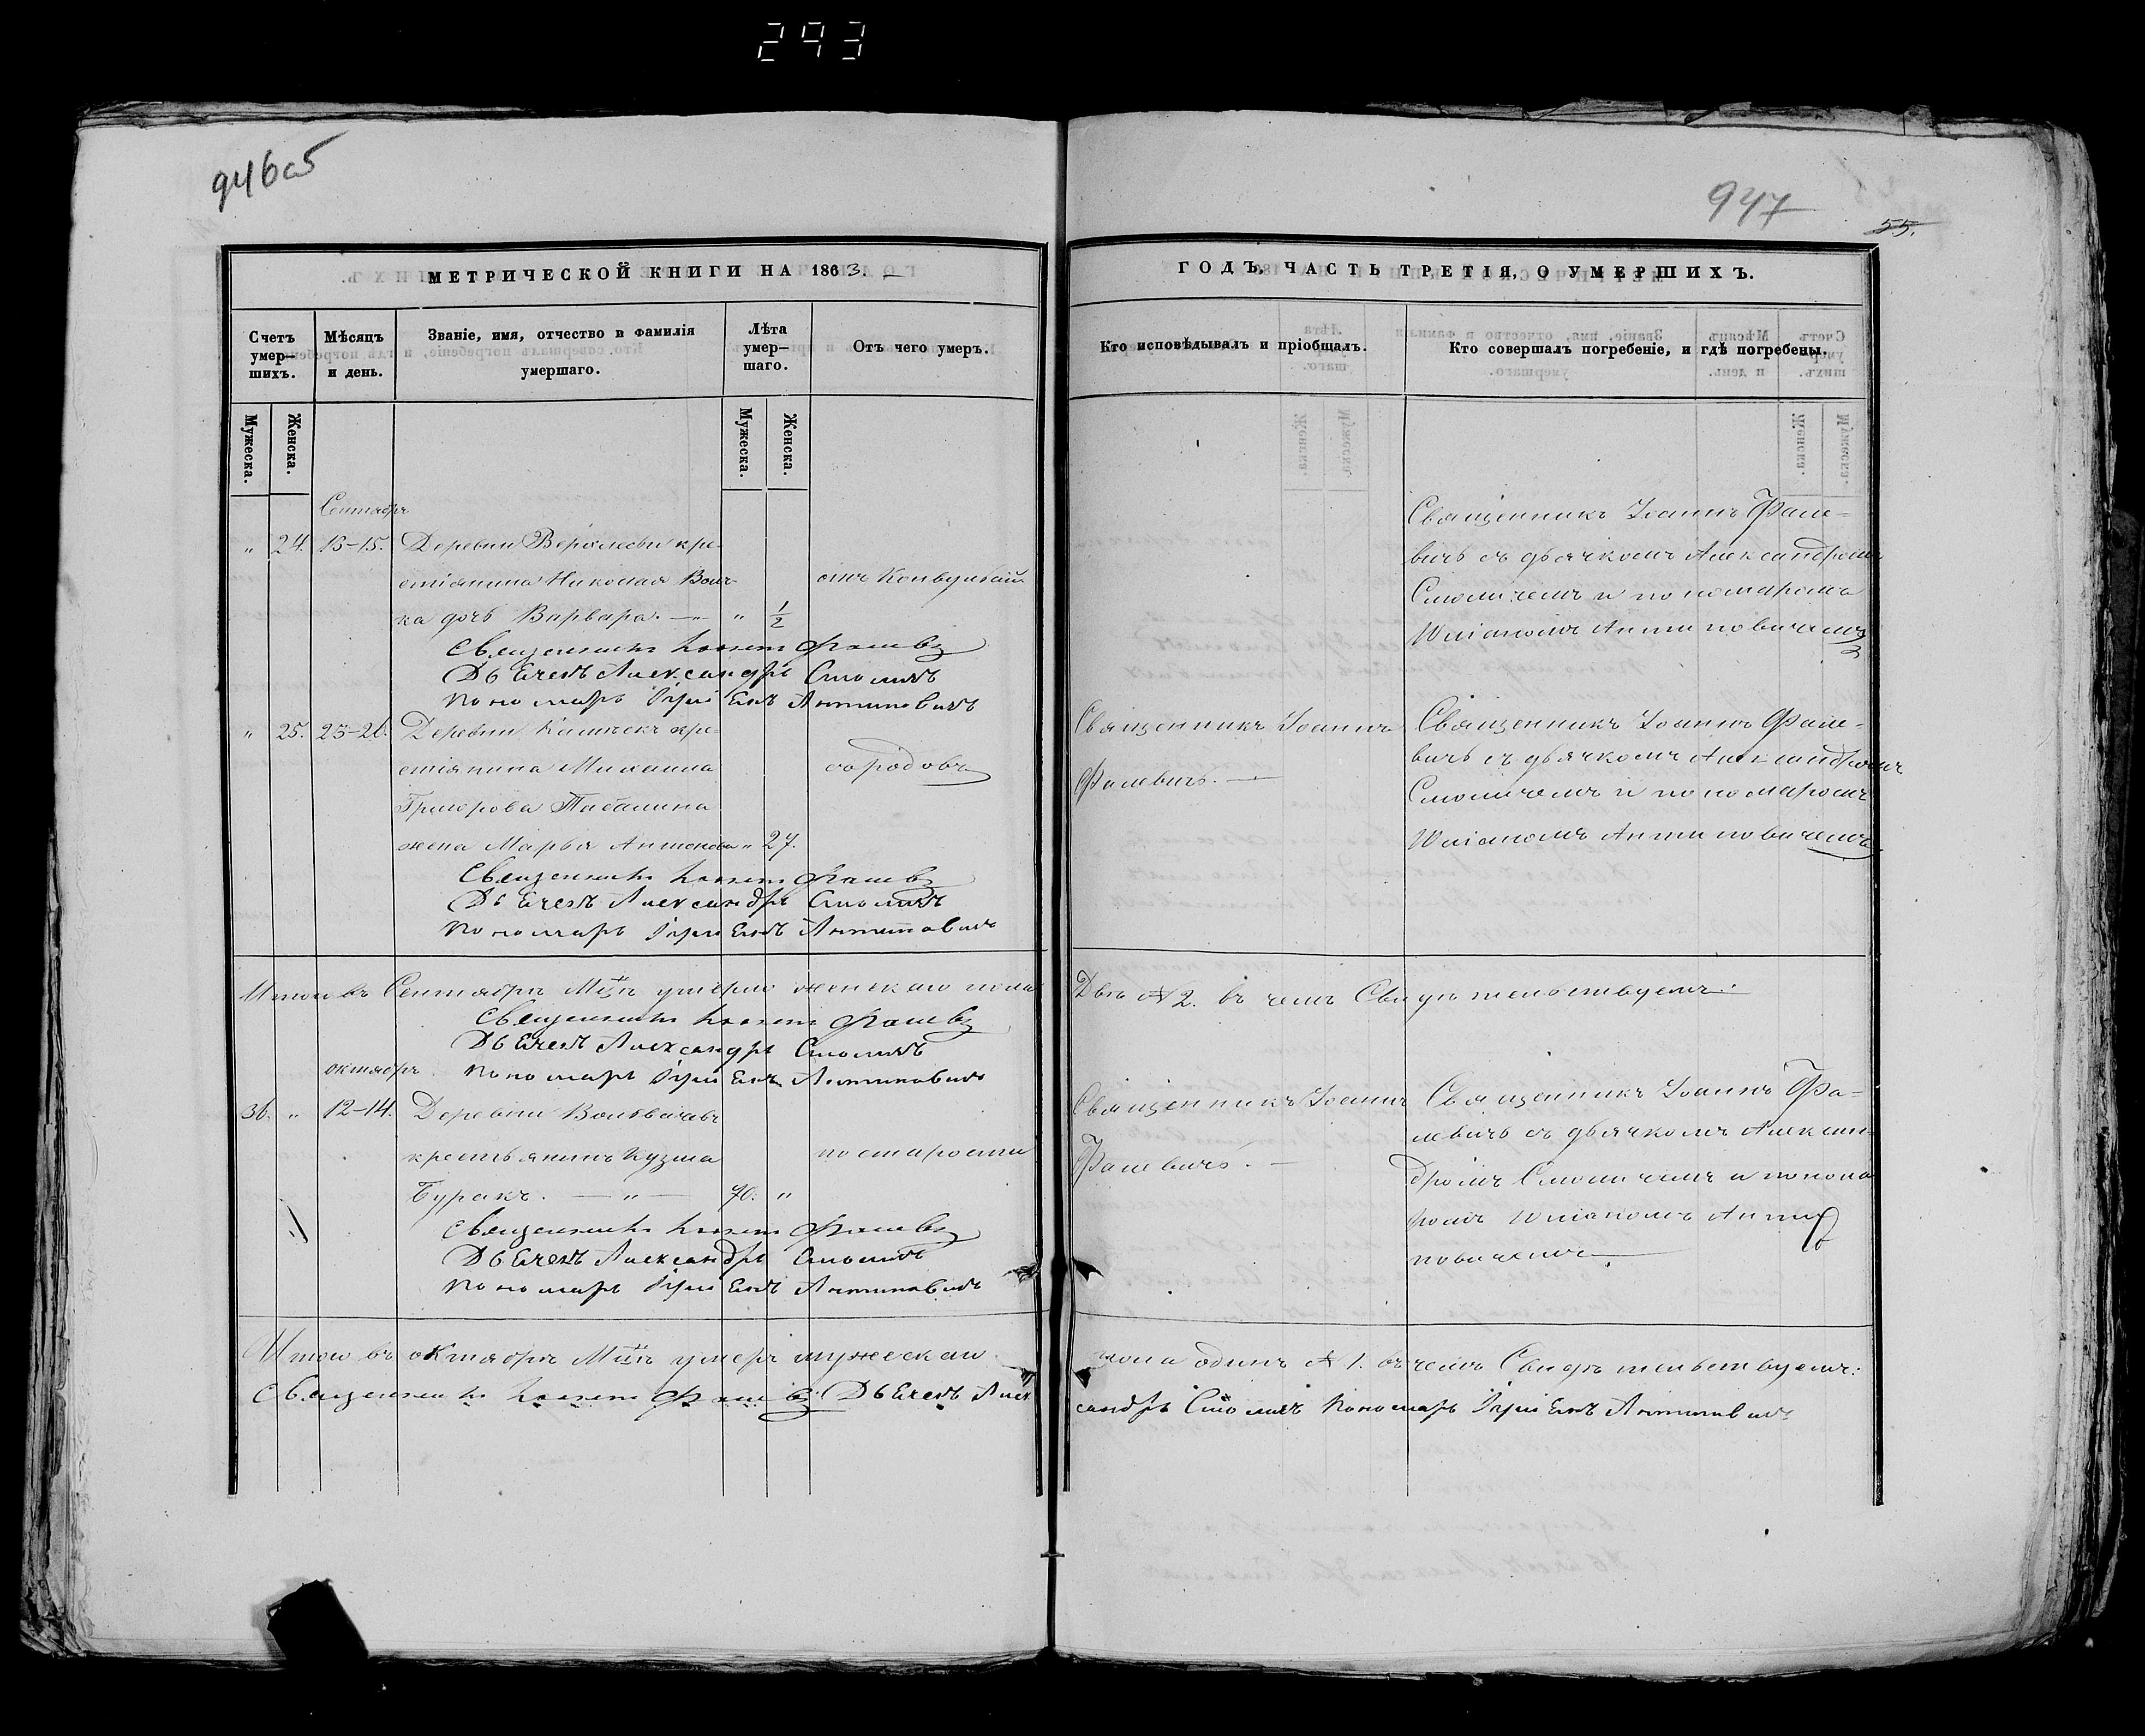 293
946об
947
55.
МЕТРИЧЕСКОЙ КНИГИ НА 1863.
ГОДЪ, ЧАСТЬ ТРЕТІЯ, О УМЕРШИХЪ.
Счетъ умер—шихъ.
Мѣсяцъ и день.
Званіе, имя, отчество и фамилія умершаго.
Лѣта умер—шаго.
Отъ чего умеръ.
Кто исповѣдывалъ и пріобщалъ.
Кто совершалъ погребеніе, и гдѣ погребены.
Мужеска.
Женска.
Мужеска.
Женска.
Сентябрь
" 24. 13-15. Деревни кре-
стіянина Николая
ка дочь Варвара. — " 1/2
отъ Конвульсій
Священникъ Іоаннъ Фалевичъ
Дьячекъ Александръ Смоличъ
Пономарь Юліанъ Антиповичъ
Священникъ Іоаннъ Фале-
вичъ съ дьячкомъ Александромъ
Смоличемъ и пономаремъ
Юліаномъ Антиповичемъ
" 25. 23-26. Деревни кре-
стіянина Михаила
Григорова
жена Марья Антонова " 27.
съ родовъ
Священникъ Іоаннъ Фалевичъ
Дьячекъ Александръ Смоличъ
Пономарь Юліанъ Антиповичъ
Священникъ Іоаннъ
Фалевичъ. —
Священникъ Іоаннъ Фале-
вичъ съ дьячкомъ Александромъ
Смоличемъ и пономаремъ
Юліаномъ Антиповичемъ
Итого въ Сентябрѣ М-цѣ умерло женскаго пола
Двѣ № 2. въ чемъ Свидѣтельствуемъ:
Священникъ Іоаннъ Фалевичъ
Дьячекъ Александръ Смоличъ
Пономарь Юліанъ Антиповичъ
октябрь
36. " 12-14. Деревни
крестьянинъ Кузма
Буракъ. — " — 70. "
по старости
Священникъ Іоаннъ Фалевичъ
Дьячекъ Александръ Смоличъ
Пономарь Юліанъ Антиповичъ
Священникъ Іоаннъ
Фалевичъ. —
Священникъ Іоаннъ Фа-
левичъ съ дьячкомъ Алексан-
дромъ Смоличемъ и понома
ромъ Юліаномъ Анти
повичемъ
Итого въ октябрѣ М-цѣ умеръ мужескаго
пола одинъ № 1. въ чемъ Свидѣтельствуемъ:
Священникъ Іоаннъ Фалевичъ Дьячекъ Алек
сандръ Смоличъ Пономарь Юліанъ Антиповичъ